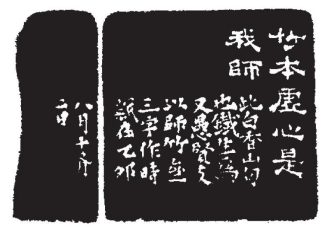 竹本虛心是
我師
此白香山句
也鐵生為
又愚賢友
以師竹
三字作時
歲在乙卯
八月十
二日